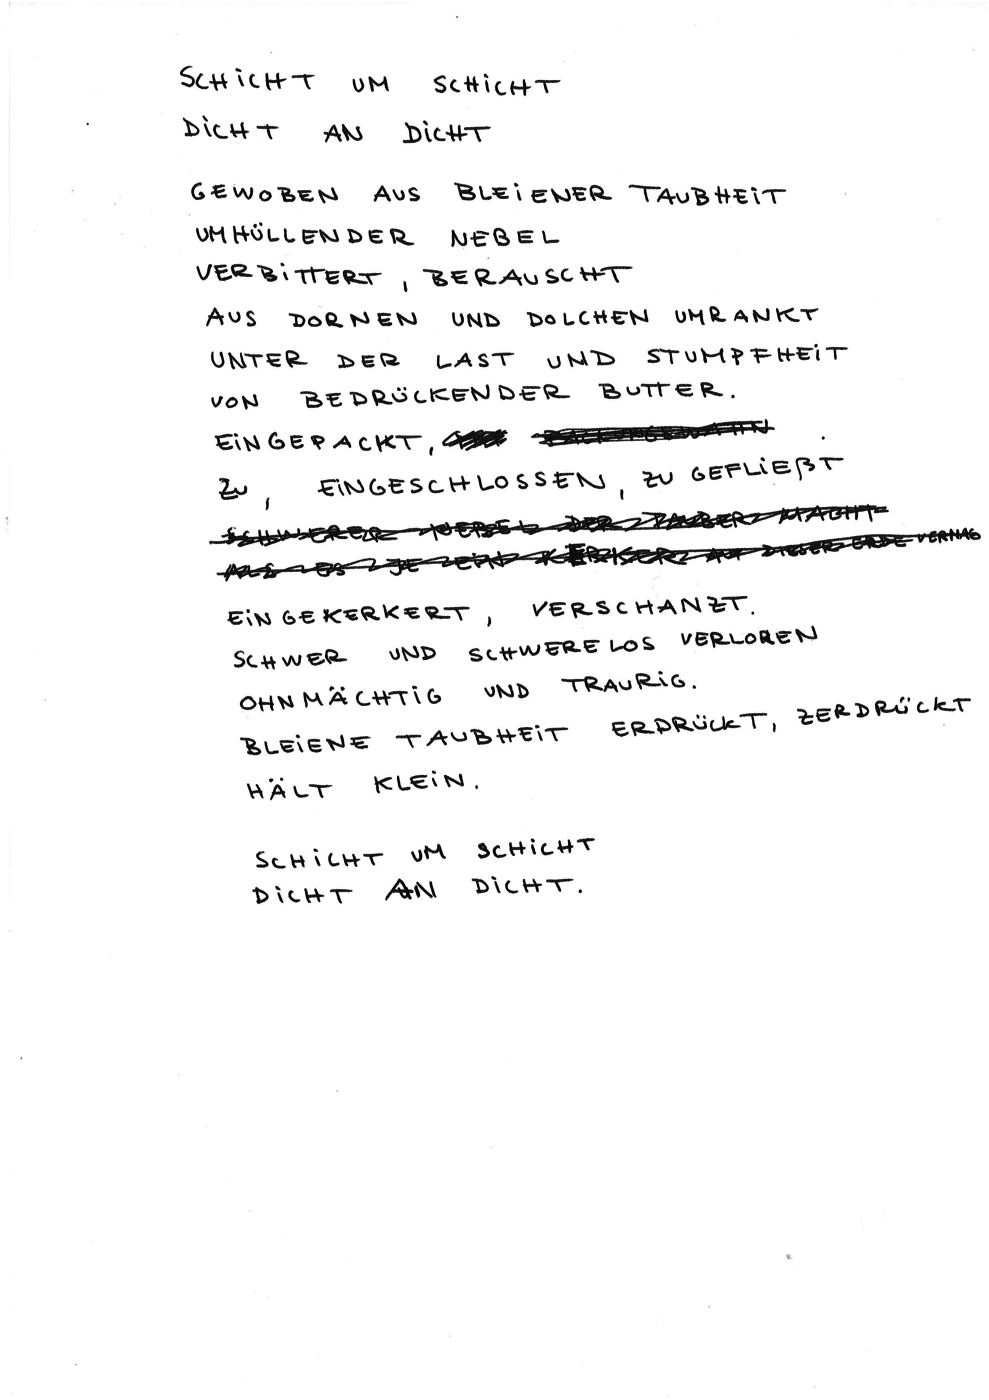 SCHICHT UM SCHICHT
DICHT AN DICHT
GEWOBEN AUS BLEIENER TAUBHEIT
UMHÜLLENDER NEBEL
VERBITTERT, BERAUSCHT
AUS DORNEN UND DOLCHEN UMRANKT
UNTER DER LAST UND STUMPFHEIT
VON BEDRÜCKENDER BUTTER.
EINGEPACKT,
ZU, EINGESCHLOSSEN, ZU GEFLIEßT
SCHWERER NEBEL DER MACHT
ALS ES JE EIN AUF DIESER ERDE VERMAG
EINGEKERKERT, VERSCHANZT.
SCHWER UND SCHWERELOS VERLOREN
OHNMÄCHTIG UND TRAURIG.
BLEIENE TAUBHEIT ERDRÜCKT, ZERDRÜCKT
HÄLT KLEIN.
SCHICHT UM SCHICHT
DICHT AN DICHT.